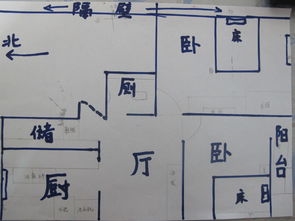 隔壁
北
卧
床
厕
储
厅
卧
阳台
厨
床